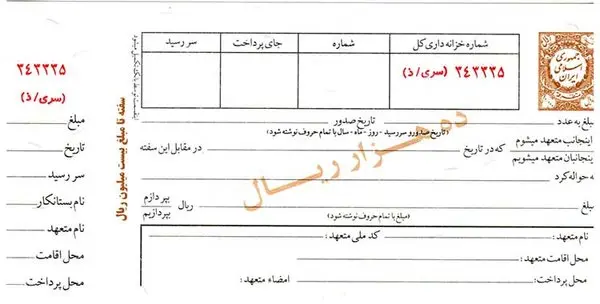 جمهوری
اسلامی
ایران
شماره خزانه داری کل
شماره
جای پرداخت
سر رسید
۲۴۲۳۳۵ (سری/ذ)
ده هزار ریال
مبلغ به عدد
تاریخ صدور
(تاریخ صدور و سررسید - روز - ماه - سال با تمام حروف نوشته شود)
اینجانب متعهد میشوم
اینجانبان متعهد میشویم
که در تاریخ
در مقابل این سفته
به حواله کرد
مبلغ
ریال
بپردازم
بپردازیم
(مبلغ با تمام حروف نوشته شود)
نام متعهد:
کد ملی متعهد:
محل اقامت متعهد:
محل پرداخت:
امضاء متعهد:
سفته تا مبلغ بیست میلیون ریال
۲۴۲۳۳۵
(سری/ذ)
مبلغ
تاریخ
سر رسید
نام بستانکار
نام متعهد
محل اقامت
محل پرداخت